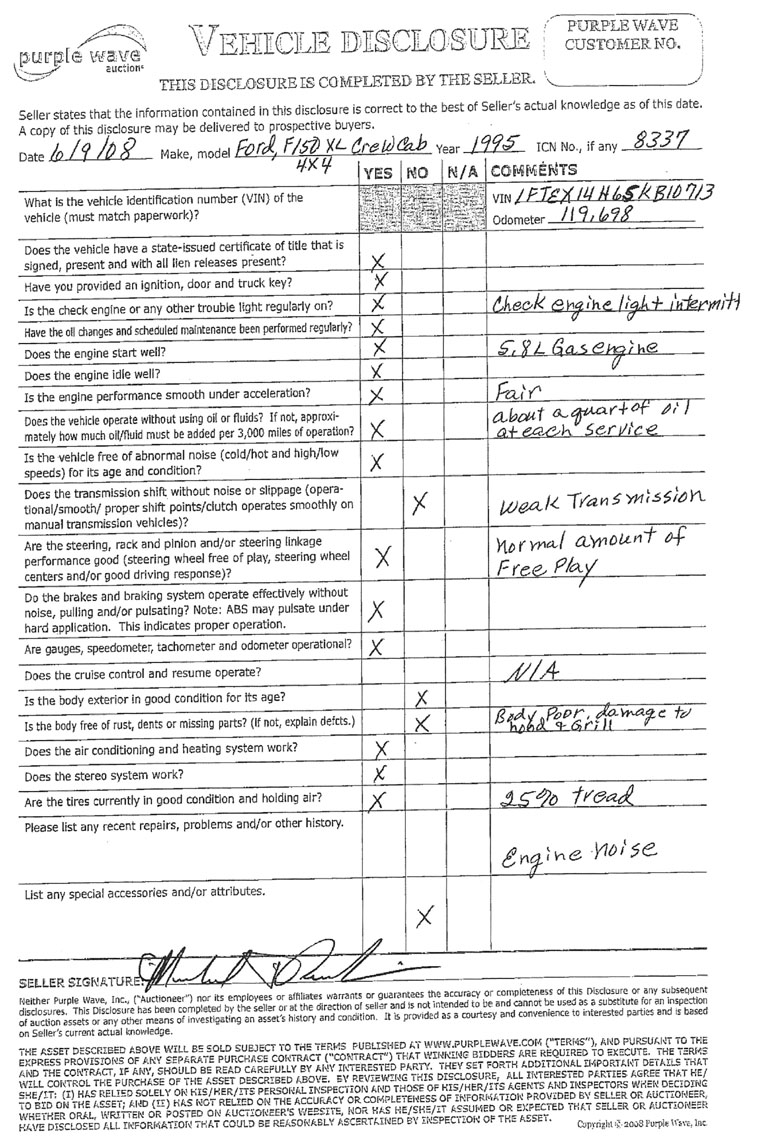 purple wave
auction®
VEHICLE DISCLOSURE
PURPLE WAVE
CUSTOMER NO.
THIS DISCLOSURE IS COMPLETED BY THE SELLER.
Seller states that the information contained in this disclosure is correct to the best of Seller's actual knowledge as of this date.
A copy of this disclosure may be delivered to prospective buyers.
Date 6/9/08 Make, model Ford, F150 XL Crew Cab Year 1995 ICN No., if any 8337
4X4
YES NO N/A COMMENTS
What is the vehicle identification number (VIN) of the
vehicle (must match paperwork)?
VIN 1FTEX14H65KB10713
Odometer 119,698
Does the vehicle have a state-issued certificate of title that is
signed, present and with all lien releases present? X
Have you provided an ignition, door and truck key? X
Is the check engine or any other trouble light regularly on? X Check engine light intermitt
Have the oil changes and scheduled maintenance been performed regularly? X
Does the engine start well? X 5.8L Gas engine
Does the engine idle well? X
Is the engine performance smooth under acceleration? X Fair
Does the vehicle operate without using oil or fluids? If not, approxi-
mately how much oil/fluid must be added per 3,000 miles of operation? X
about a quart of oil
at each service
Is the vehicle free of abnormal noise (cold/hot and high/low
speeds) for its age and condition? X
Does the transmission shift without noise or slippage (opera-
tional/smooth/ proper shift points/clutch operates smoothly on
manual transmission vehicles)? X Weak Transmission
Are the steering, rack and pinion and/or steering linkage
performance good (steering wheel free of play, steering wheel
centers and/or good driving response)? X
normal amount of
Free Play
Do the brakes and braking system operate effectively without
noise, pulling and/or pulsating? Note: ABS may pulsate under
hard application. This indicates proper operation. X
Are gauges, speedometer, tachometer and odometer operational? X
Does the cruise control and resume operate? N/A
Is the body exterior in good condition for its age? X
Is the body free of rust, dents or missing parts? (If not, explain defcts.) X
Body Poor, damage to
hood & Grill
Does the air conditioning and heating system work? X
Does the stereo system work? X
Are the tires currently in good condition and holding air? X 25% tread
Please list any recent repairs, problems and/or other history.
Engine noise
List any special accessories and/or attributes.
X
SELLER SIGNATURE:
Neither Purple Wave, Inc., ("Auctioneer") nor its employees or affiliates warrants or guarantees the accuracy or completeness of this Disclosure or any subsequent
disclosures. This Disclosure has been completed by the seller or at the direction of seller and is not intended to be and cannot be used as a substitute for an inspection
of auction assets or any other means of investigating an asset's history and condition. It is provided as a courtesy and convenience to interested parties and is based
on Seller's current actual knowledge.
THE ASSET DESCRIBED ABOVE WILL BE SOLD SUBJECT TO THE TERMS PUBLISHED AT WWW.PURPLEWAVE.COM ("TERMS"), AND PURSUANT TO THE
EXPRESS PROVISIONS OF ANY SEPARATE PURCHASE CONTRACT ("CONTRACT") THAT WINNING BIDDERS ARE REQUIRED TO EXECUTE. THE TERMS
AND THE CONTRACT, IF ANY, SHOULD BE READ CAREFULLY BY ANY INTERESTED PARTY. THEY SET FORTH ADDITIONAL IMPORTANT DETAILS THAT
WILL CONTROL THE PURCHASE OF THE ASSET DESCRIBED ABOVE. BY REVIEWING THIS DISCLOSURE, ALL INTERESTED PARTIES AGREE THAT HE/
SHE/IT: (I) HAS RELIED SOLELY ON HIS/HER/ITS PERSONAL INSPECTION AND THOSE OF HIS/HER/ITS AGENTS AND INSPECTORS WHEN DECIDING
TO BID ON THE ASSET; AND (II) HAS NOT RELIED ON THE ACCURACY OR COMPLETENESS OF INFORMATION PROVIDED BY SELLER OR AUCTIONEER,
WHETHER ORAL, WRITTEN OR POSTED ON AUCTIONEER'S WEBSITE, NOR HAS HE/SHE/IT ASSUMED OR EXPECTED THAT SELLER OR AUCTIONEER
HAVE DISCLOSED ALL INFORMATION THAT COULD BE REASONABLY ASCERTAINED BY INSPECTION OF THE ASSET.
Copyright © 2008 Purple Wave, Inc.